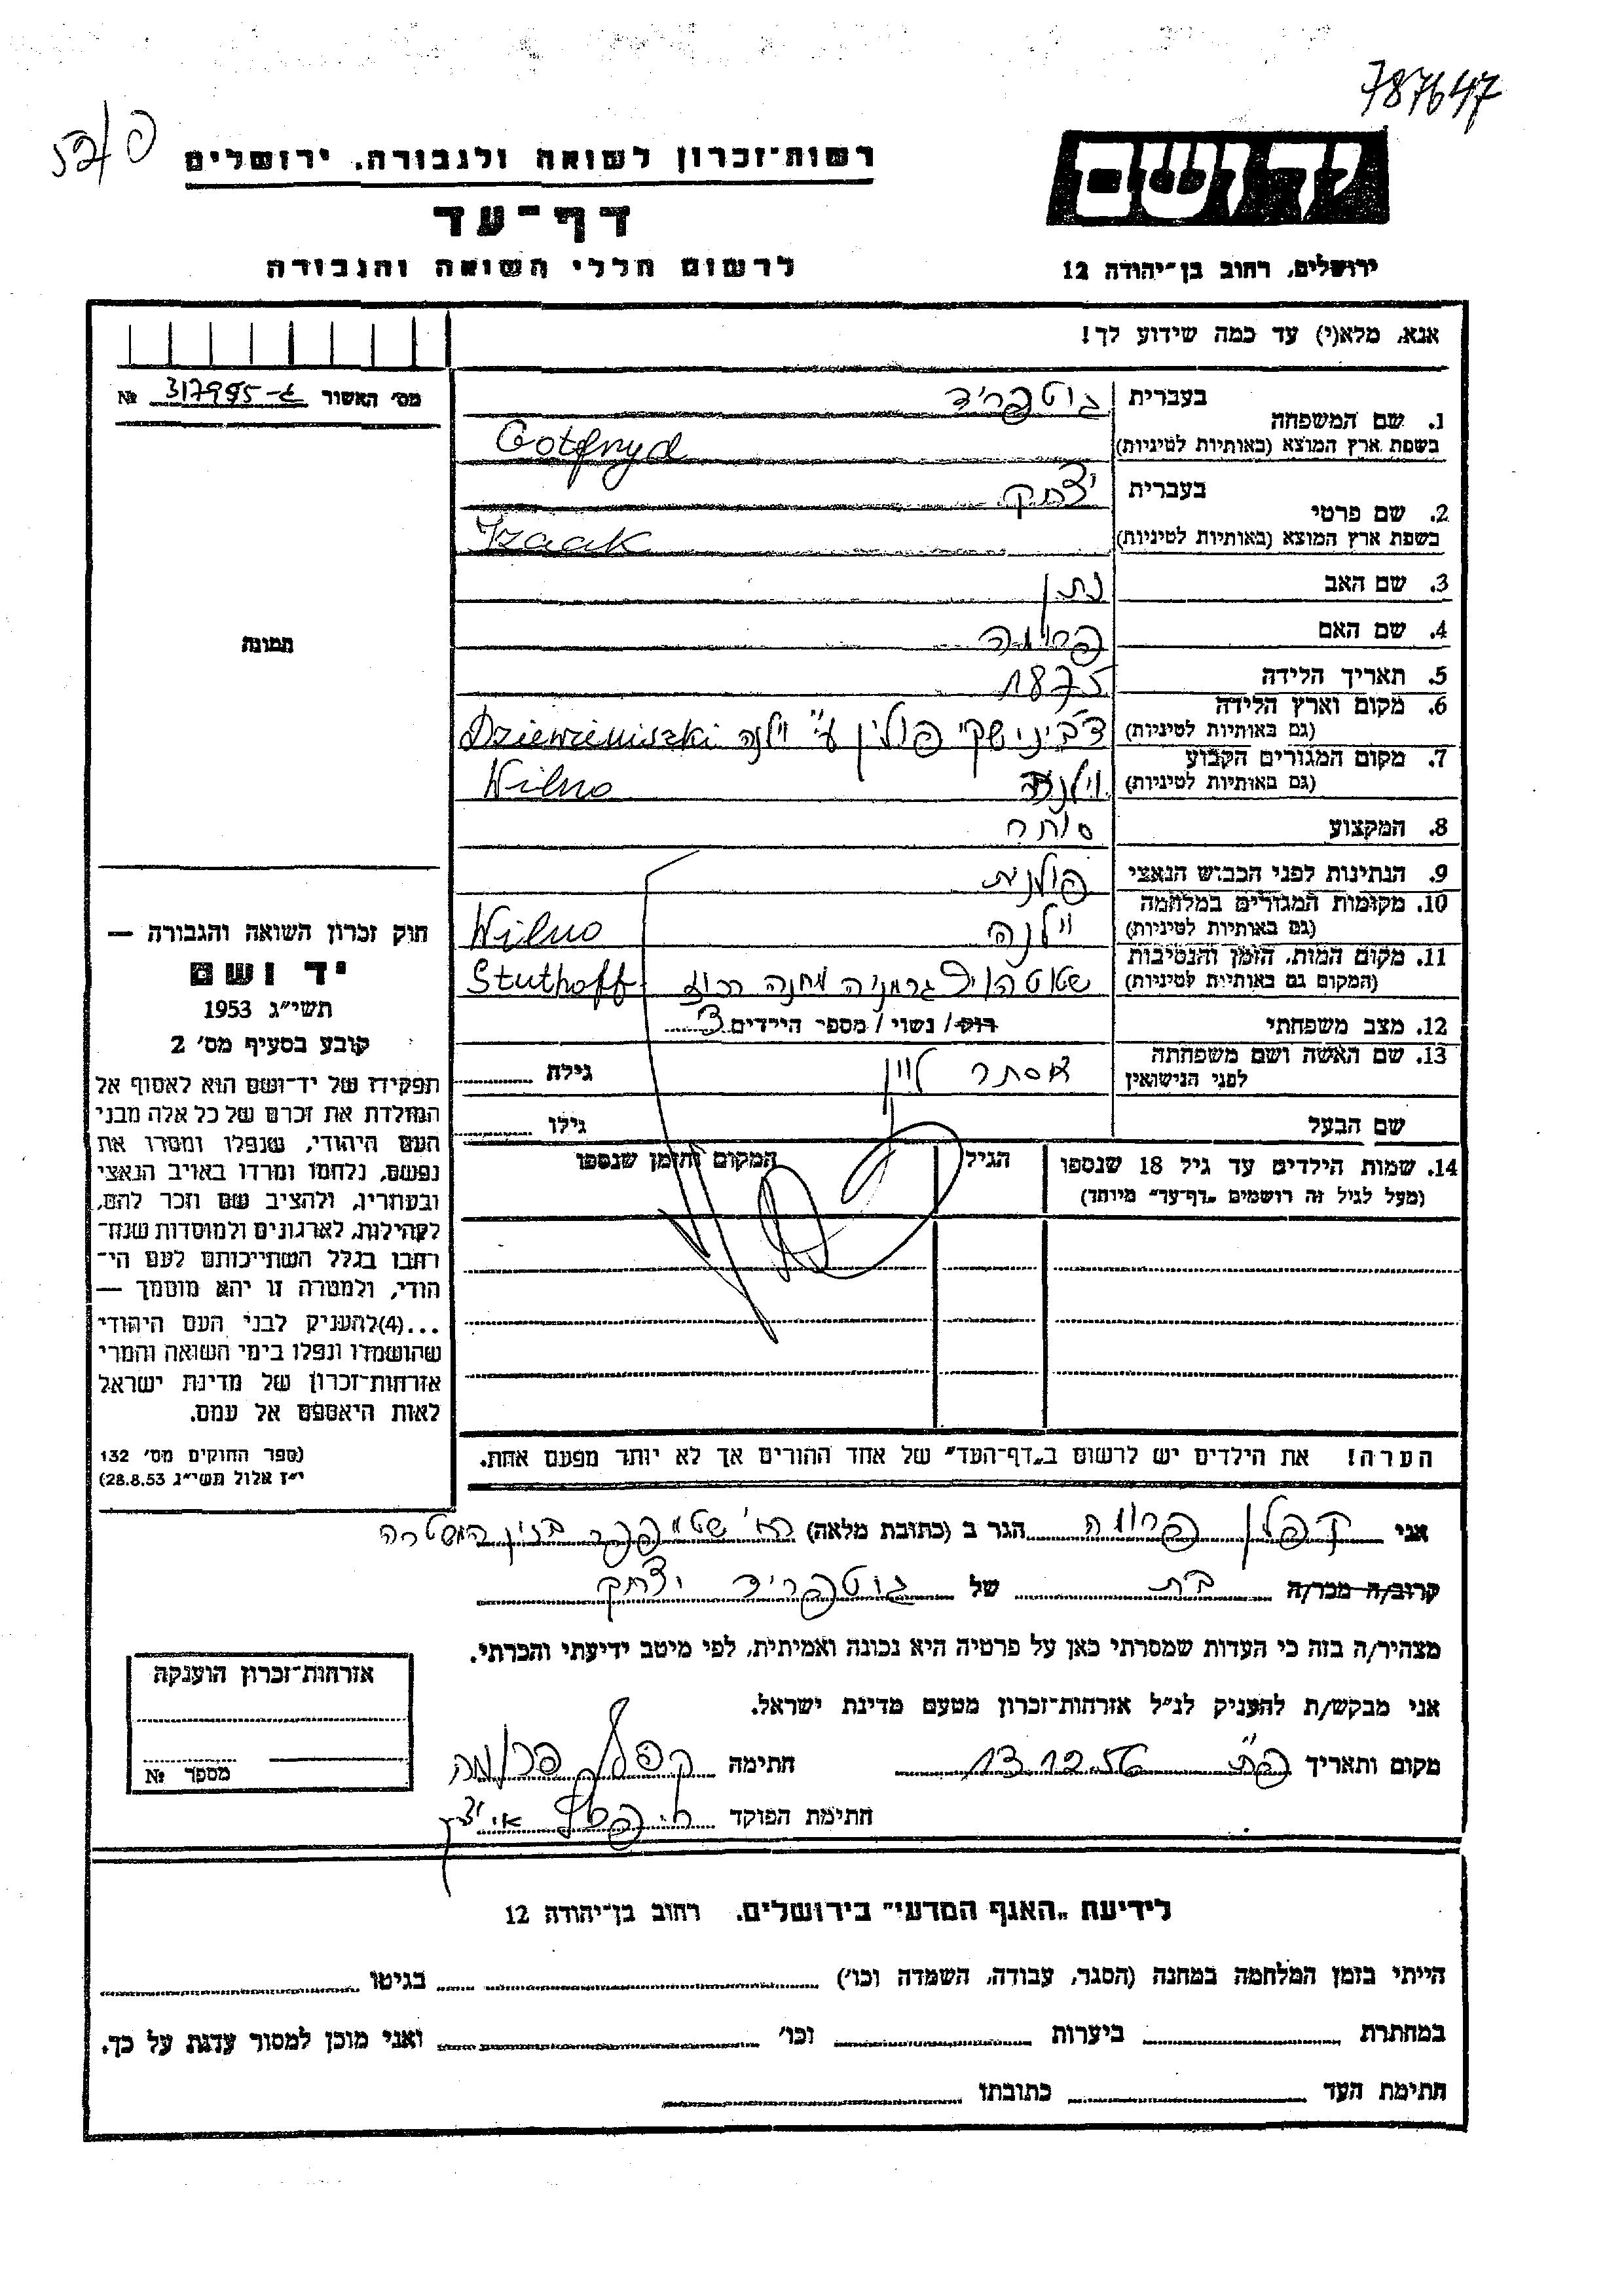 787647
רשות־זכרון לשואה ולגבורה, ירושלים
יד ושם
דף־עד
לרשום חללי השואה והגבורה
ירושלים, רחוב בן־יהודה 12
אנא, מלא(י) עד כמה שידוע לך!
מס׳ האשור 317995-ג №
1. שם המשפחה בעברית גוטפריד
בשפת ארץ המוצא (באותיות לטיניות) Gotfryd
2. שם פרטי בעברית יצחק
בשפת ארץ המוצא (באותיות לטיניות) Izaak
3. שם האב נתן
4. שם האם
5. תאריך הלידה 1875
6. מקום וארץ הלידה
(גם באותיות לטיניות) פולין ע״י וילנה Dziewieniszki
7. מקום המגורים הקבוע
(גם באותיות לטיניות) וילנה Wilno
8. המקצוע סוחר
9. הנתינות לפני הכבוש הנאצי פולנית
10. מקומות המגורים במלחמה
(גם באותיות לטיניות) וילנה Wilno
11. מקום המות, הזמן והנסיבות
(המקום גם באותיות לטיניות) שטוטהוף גרמניה מחנה רכוז Stuthoff
12. מצב משפחתי רוק/ נשוי / מספר הילדים 3
13. שם האשה ושם משפחתה
לפני הנישואין אסתר לוין גילה
שם הבעל גילו
14. שמות הילדים עד גיל 18 שנספו הגיל המקום והזמן שנספו
(מעל לגיל זה רושמים „דף־עד״ מיוחד)
הערה! את הילדים יש לרשום ב„דף־העד״ של אחד ההורים אך לא יותר מפעם אחת.
תמונה
חוק זכרון השואה והגבורה —
יד ושם
תשי״ג 1953
קובע בסעיף מס׳ 2
תפקידו של יד־ושם הוא לאסוף אל
המולדת את זכרם של כל אלה מבני
העם היהודי, שנפלו ומסרו את
נפשם, נלחמו ומרדו באויב הנאצי
ובעוזריו, ולהציב שם וזכר להם,
לקהילות, לארגונים ולמוסדות שנח־
רבו בגלל השתייכותם לעם הי־
הודי, ולמטרה זו יהא מוסמך —
...(4)להעניק לבני העם היהודי
שהושמדו ונפלו בימי השואה והמרי
אזרחות־זכרון של מדינת ישראל
לאות היאספם אל עמם.
(ספר החוקים מס׳ 132
י״ז אלול תשי״ג 28.8.53)
אני קפלן פרומה הגר ב (כתובת מלאה) בנין המשטרה
קרוב/ה מכר/ה בת של גוטפריד יצחק
מצהיר/ה בזה כי העדות שמסרתי כאן על פרטיה היא נכונה ואמיתית, לפי מיטב ידיעתי והכרתי.
אני מבקש/ת להעניק לנ״ל אזרחות־זכרון מטעם מדינת ישראל.
מקום ותאריך פ״ת 13.12.56 חתימה קפלן פרומה
חתימת הפוקד
אזרחות־זכרון הוענקה
מספר №
לידיעת „האגף המדעי״ בירושלים, רחוב בן־יהודה 12
הייתי בזמן המלחמה במחנה (הסגר, עבודה, השמדה וכו׳) בגיטו
במחתרת ביערות וכו׳ ואני מוכן למסור עדות על כך.
חתימת העד כתובתו